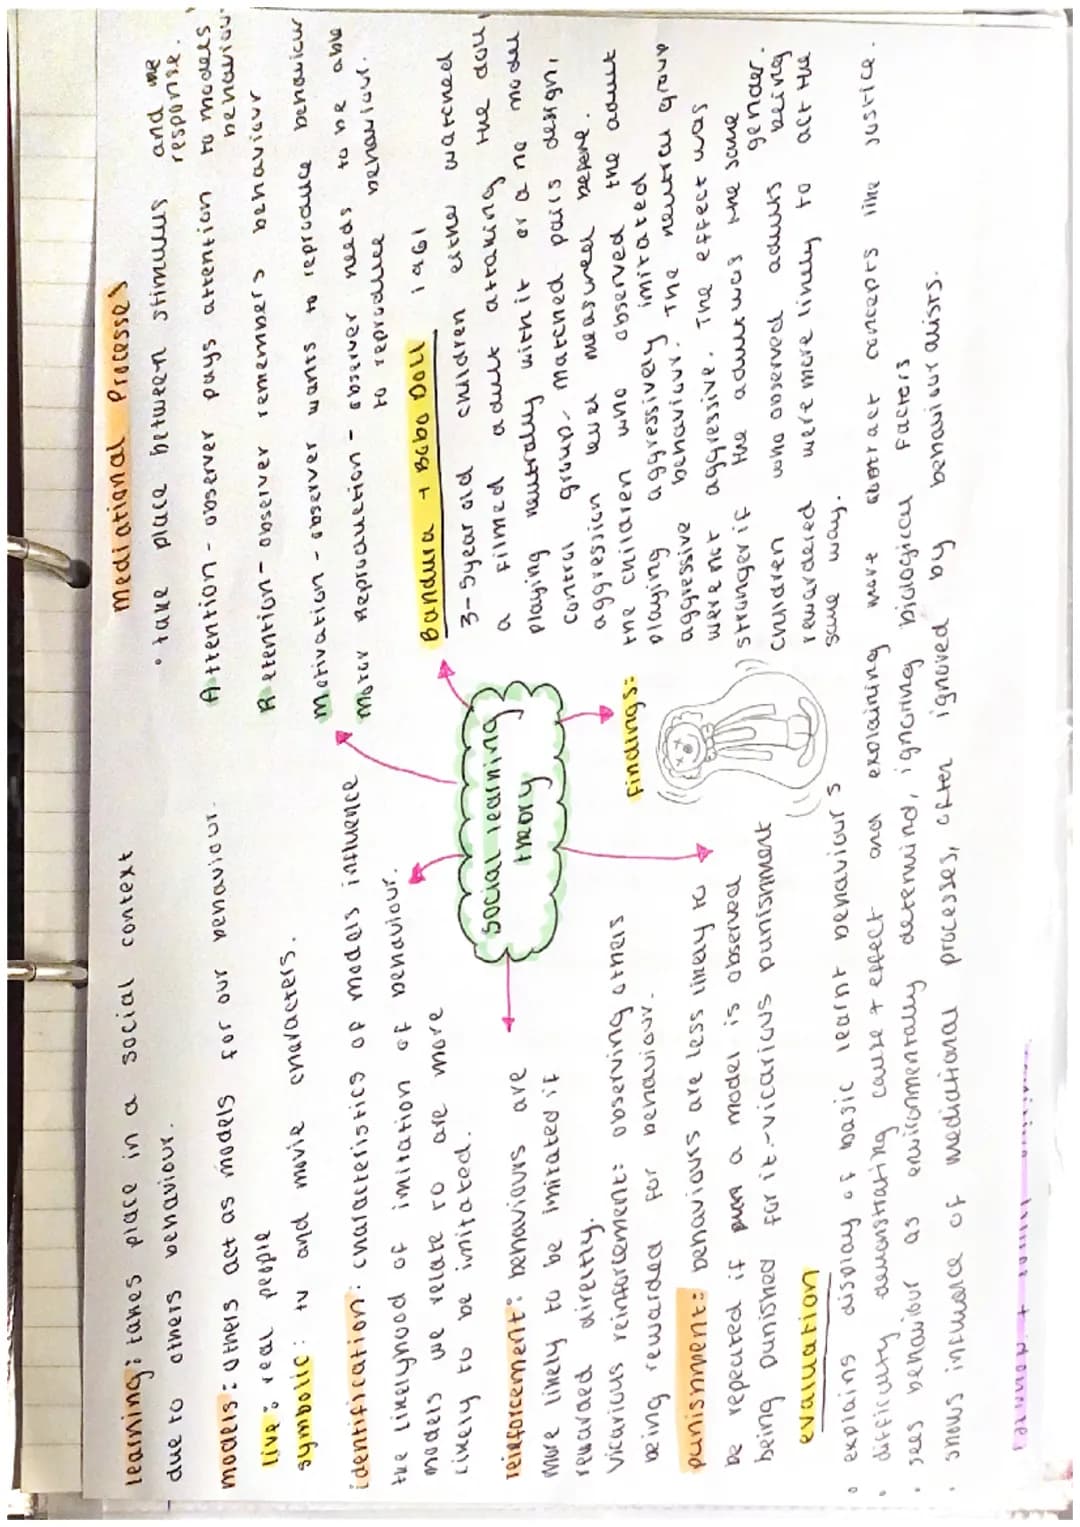 learning: takes place in a social context
due to others behaviour.
models: others act as models for our behaviour.
live: real people
symbolic: tv and movie characters.
identification: characteristics of models influence
the likelyhood of imitation of behaviour.
models we relate to are more
likely to be imitated.
reinforcement: behaviours are
more likely to be imitated if
rewarded directly.
Vicarious reinforcement: observing others
being rewarded for behaviour.
punishment: behaviours are less likely to
be repeated if a model is observed
being punished for it-vicarious punishment
social learning
theory
Mediational Processes
• take place between stimulus and the
response.
Attention - observer pays attention to models
behaviour
Retention - observer remembers behaviour
Motivation - observer wants to reproduce behaviour
Motor Reproduction - observer needs to be able
to reproduce behaviour.
Bandura + Bobo Doll 1961
3-5year old children either watched
a filmed adult attaking the doll,
playing neutrally with it or a no model
control group. Matched pairs design,
aggression level measured before.
Findings:
the children who observed the adult
playing aggressively imitated
aggressive behaviour. The neutral group
were not aggressive. The effect was
stronger if the adult was the same
gender.
Children who observed adults being
rewardered were more likely to act the
same way.
evaluation
• explains display of basic learnt behaviours
• difficulty demonstrating cause + effect and explaining more abstract concepts like justice.
• sees behaviour as environmentally determind, ignoring biological factors
• shows influence of mediational processes, often ignored by behaviourists.